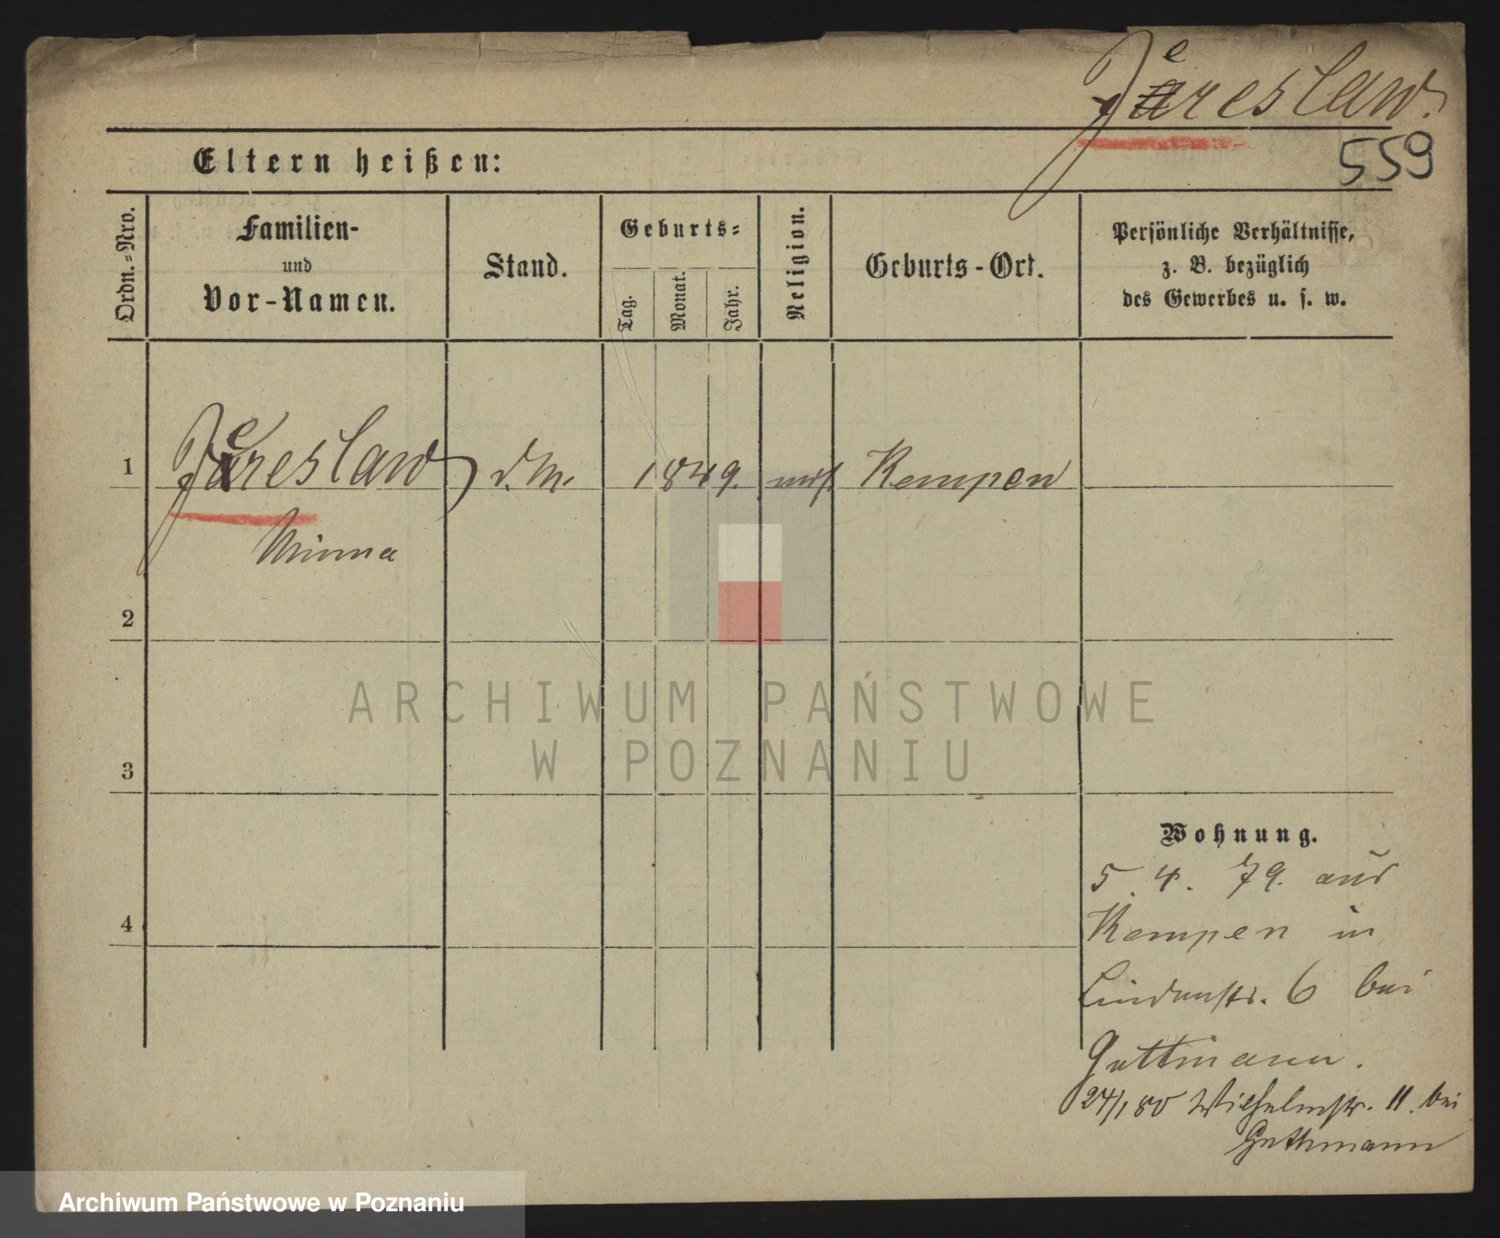 Jereslaw.
559
Eltern heißen:
Ordn.=Nro.
Familien-
und
Vor-Namen.
Stand.
Geburts=
Tag.
Monat.
Jahr.
Religion.
Geburts-Ort.
Persönliche Verhältnisse,
z. B. bezüglich
des Gewerbes u. s. w.
1
Jereslaw d. M. 1849. mos. Kempen
Minna
2
3
4
Wohnung.
5. 4. 79. aus
Kempen in
Lindenstr. 6 bei
Guttmann.
24/1 80 Wilhelmstr. 11. bei
Guttmann
ARCHIWUM PAŃSTWOWE
W POZNANIU
Archiwum Państwowe w Poznaniu